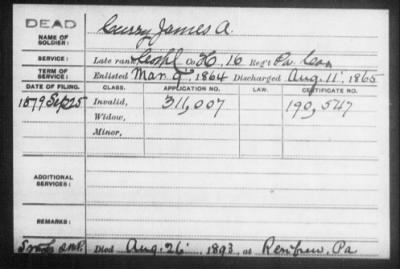 DEAD
NAME OF SOLDIER: Curry, James A.
SERVICE: Late rank Corpl Co. H, 16 Reg't Pa. Cav
TERM OF SERVICE: Enlisted Mar. 9, 1864 Discharged Aug. 11, 1865
DATE OF FILING. CLASS. APPLICATION NO. LAW. CERTIFICATE NO.
1879 Sep 25 Invalid, 311,007 190,547
Widow,
Minor,
ADDITIONAL SERVICES:
REMARKS:
Died Aug. 26, 1893, at Renfrew, Pa.